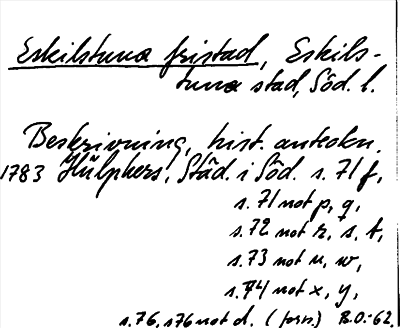 Eskilstuna fristad, Eskils-
tuna stad, Söd. l.
Beskrivning, hist. anteckn.
1783 Hülphers, Städ. i Söd. s. 71 f,
s. 71 not p, q,
s. 72 not r, s, t,
s. 73 not u, w,
s. 74 not x, y,
s. 76, s 76 not d. (forn.) B.O:-62.